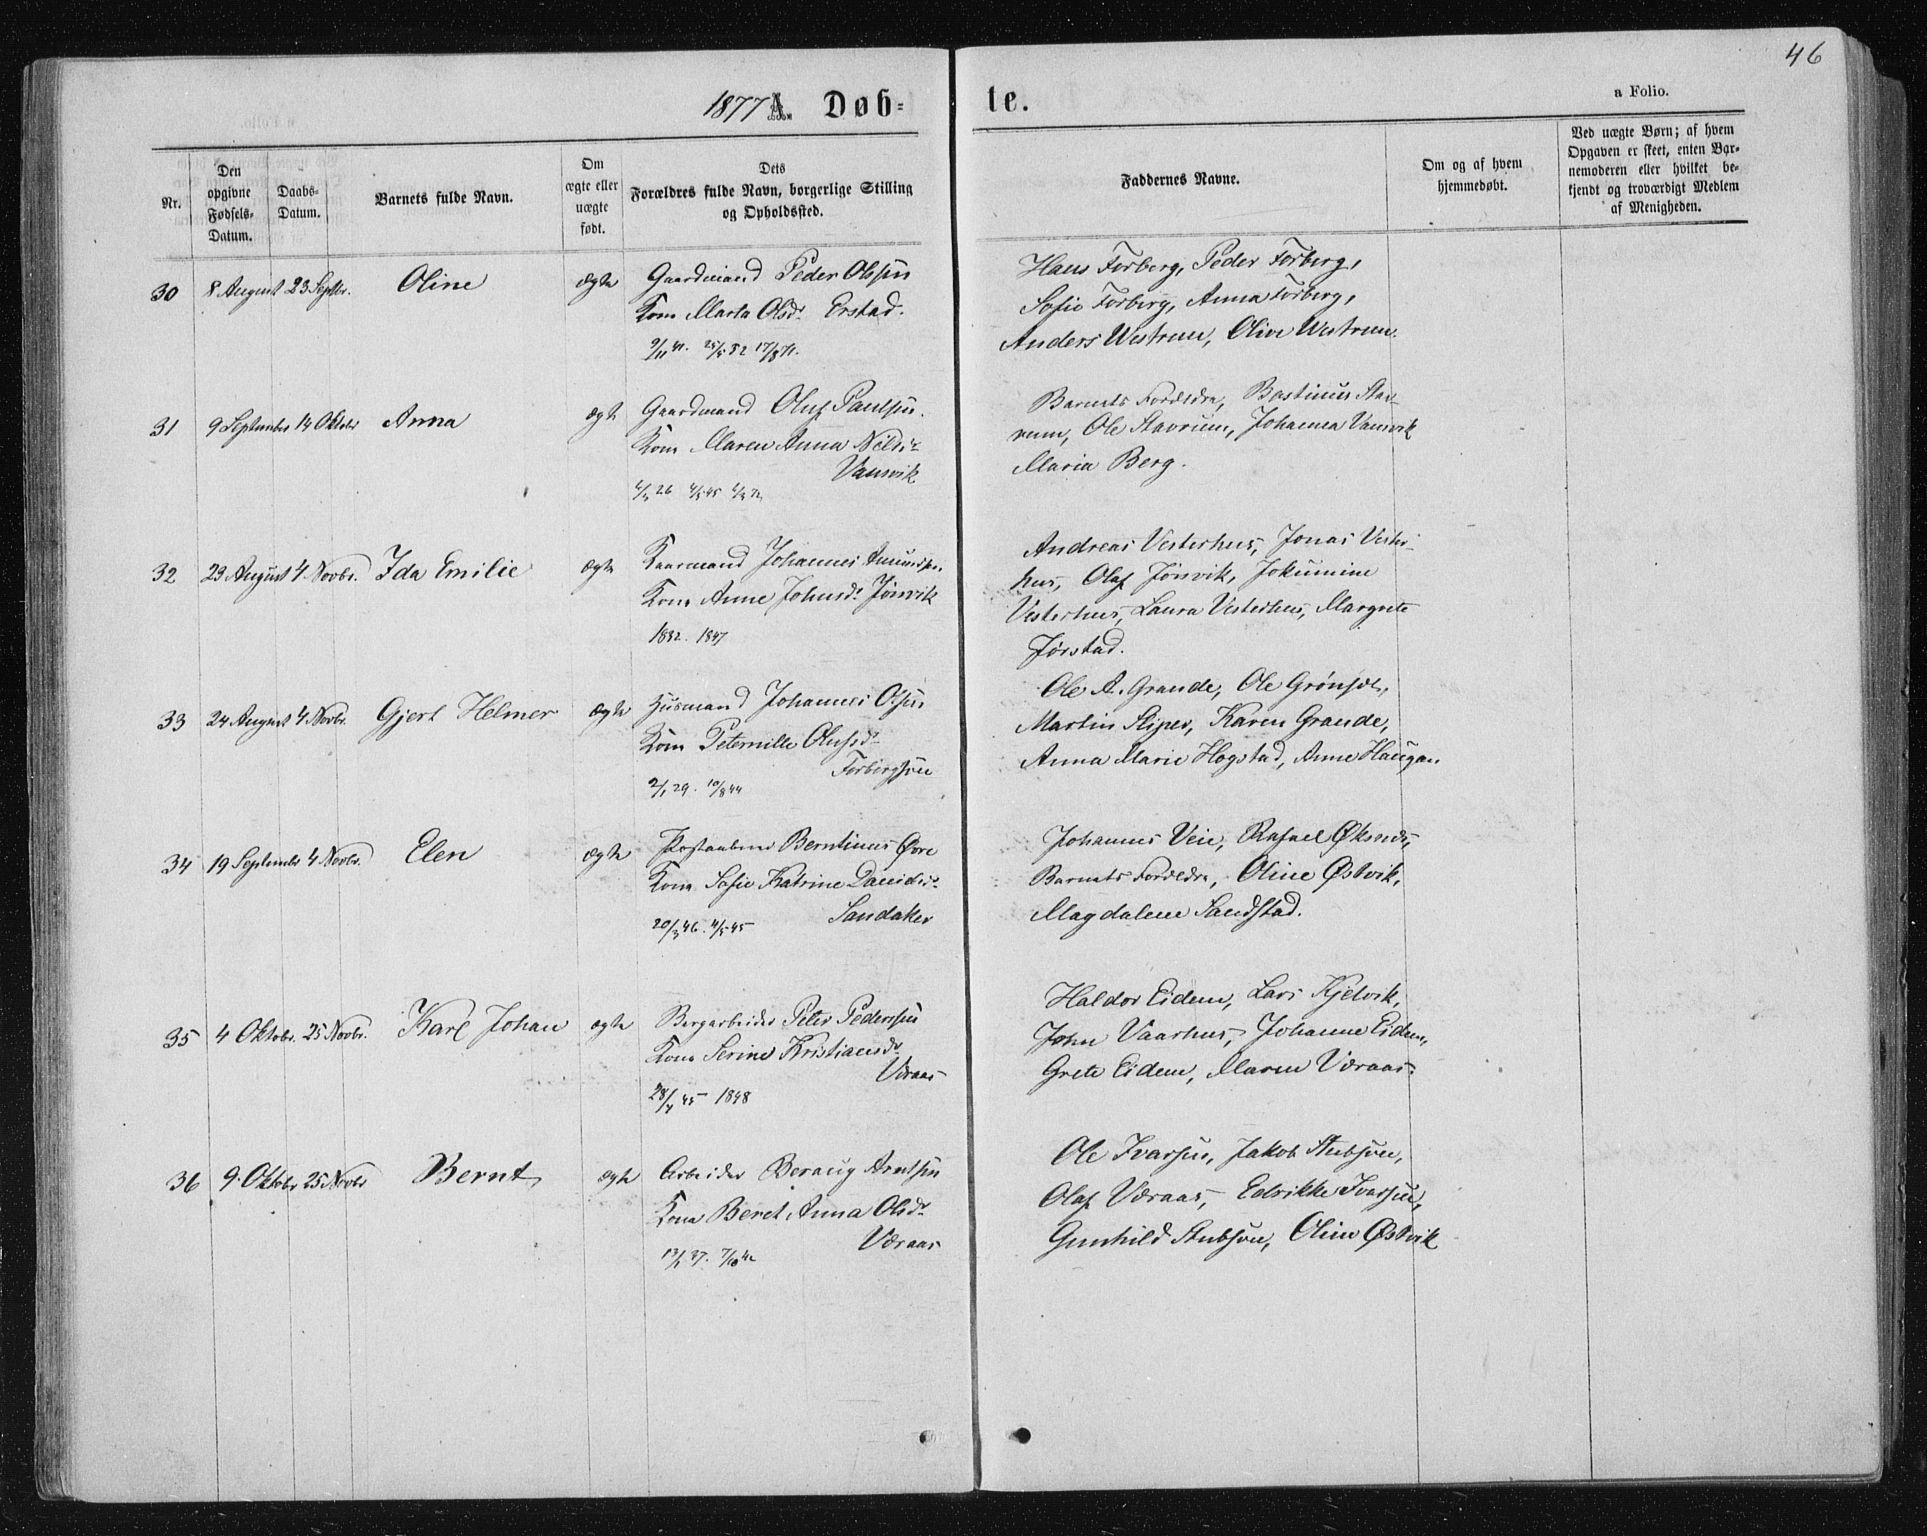 46
1877 A. Døb-
te.
a Folio.
Nr.
Den opgivne Fødsels-Datum.
Daabs-Datum.
Barnets fulde Navn.
Om ægte eller uægte født.
Dets Forældres fulde Navn, borgerlige Stilling og Opholdssted.
Faddernes Navne.
Om og af hvem hjemmedøbt.
Ved uægte Børn; af hvem Opgaven er skeet, enten Barnemoderen eller hvilket bekjendt og troværdigt Medlem af Menigheden.
30 8 August 23 Septbr. Oline ægte Gaardmand Peder Olssen
Kone Marta Olsdr. Erstad.
9/11 41. 25/5 52 17/8 71.
Hans Forberg, Peder Forberg,
Sofie Forberg, Anna Forberg,
Anders Westrum, Olive Westrum.
31 9 September 14 Oktober Anna ægte Gaardmand Oluf Paulsen.
Kone Maren Anna Nilsdr
Vansvik
Barnets Forældre, Bastinus Stav-
rum, Ole Stavrum, Johanna Vansvik
Maria Berg.
32 23 August 4 Novbr. Ida Emilie ægte Kaarmand Johannes Amundsen.
Kone Anne Johnsdr. Jønvik
1832. 1847
Andreas Vesterhus, Jonas Vester-
hus, Olaf Jønsvik, Jokumine
Vesterhus, Laura Vesterhus, Margrete
Jørstad.
33 24 August 4 Novbr. Gjert Helmer ægte Husmand Johannes Olsen
Kone Peternille Olufsdr
2/1 29. 10/8 44
Ole A. Grande, Ole
Martin Sliper, Karen Grande,
Anna Marie Hogstad, Anne Haugan.
34 19 September 4 Novbr. Elen ægte Postaabner Berntinus Øvre
Kone Sofie Katrine Davidsdr.
Sandaker
20/3 46. 4/5 45
Johannes Veie, Rafael
Barnets Forældre, Oline Østvik,
Magdalene Sandstad.
35 4 Oktobr. 25 Novbr. Karl Johan ægte Bergarbeider Peter Pederssen
Kone Serine Kristiansdr
Væraas
28/4 45 1848
Haldor Eidem, Lars Kjelvik,
John Vaarhus, Johanne Eidem,
Grete Eidem, Maren Væraas.
36 9. Oktobr 25 Novbr Bernt ægte Arbeider Beraug Arntsen
Kone Beret Anna Olsdr
Væraas
Ole Ivarsen, Jakob Stubsøen,
Olaf Væraas, Edrikke Ivarsen,
Gunhild Stubsøen, Oline Østvik